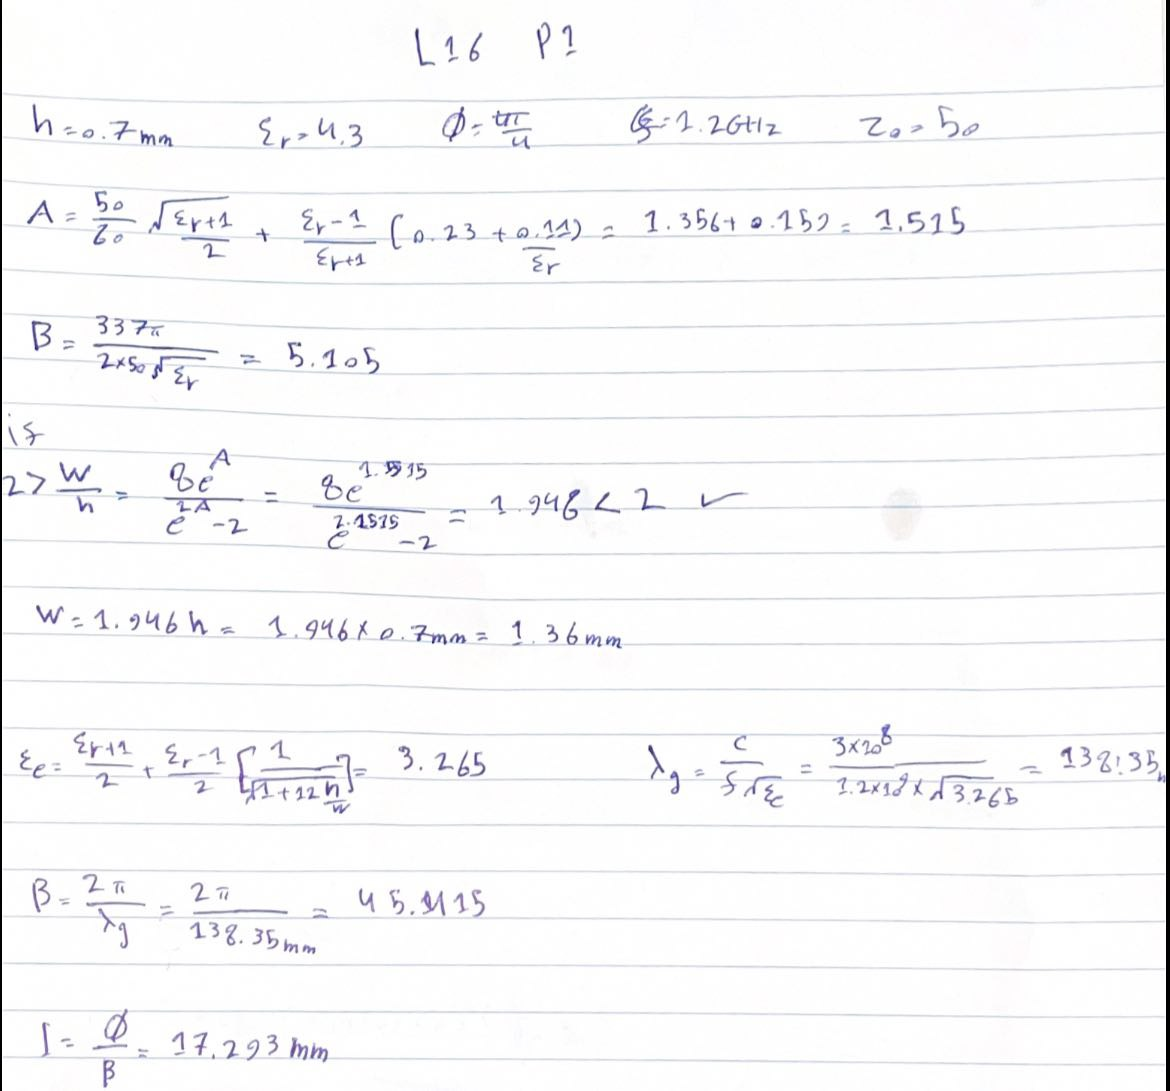 L16 P1
h=0.7mm εr=4.3 Ø=π/4 f=1.2GHz Z₀=50
A = 50/60 √(εr+1)/2 + (εr-1)/(εr+1) (0.23 + 0.11/εr) = 1.356+0.159 = 1.515
B = 337π/(2×50√εr) = 5.105
if
2> W/h = 8e^A/(e^2A -2) = 8e^1.515/(e^2.1515 -2) = 1.946 < 2 ✓
W = 1.946h = 1.946×0.7mm = 1.36mm
εe = (εr+1)/2 + (εr-1)/2 [1/√(1+12 h/w)] = 3.265 λg = c/(f√εe) = 3×10^8/(1.2×10^9×√3.265) = 138.35
β = 2π/λg = 2π/138.35mm = 45.415
l = Ø/β = 17.293 mm